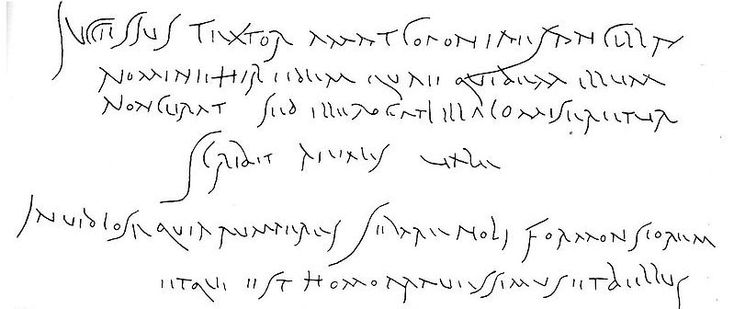 Successus textor amat coponiaes ancilla
nomine Hiredem quae quidem illum
non curat sed ille rogat illa comiseretur
scribit rivalis vale
Invidiose quia rumperes noli formonsiorem
et qui est homo pravissimus et bellus